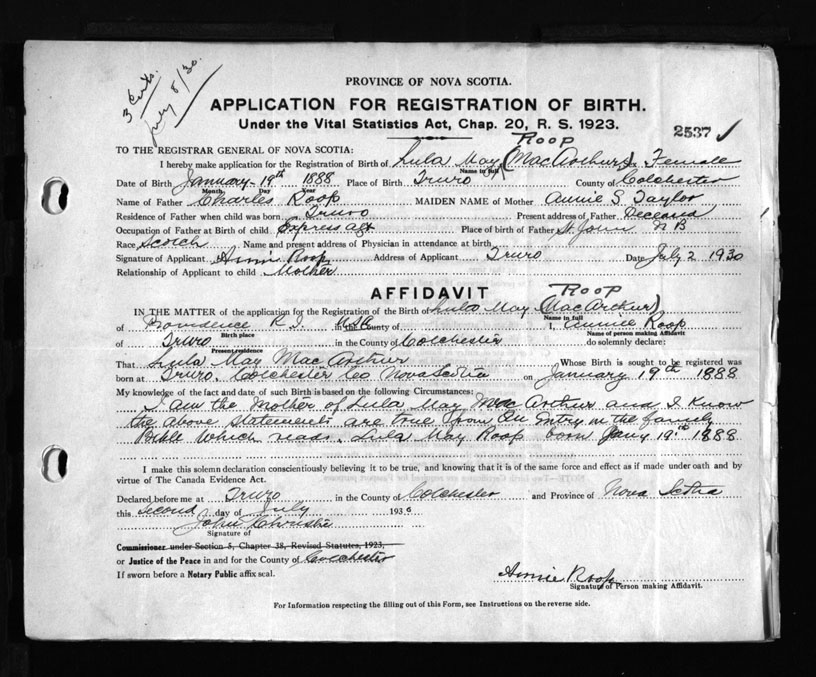 3 Certs.
July 8/30.
PROVINCE OF NOVA SCOTIA.
APPLICATION FOR REGISTRATION OF BIRTH.
Under the Vital Statistics Act, Chap. 20, R. S. 1923.
2537 ✓
Roop
TO THE REGISTRAR GENERAL OF NOVA SCOTIA:
I hereby make application for the Registration of Birth of Lula May (MacArthur). Female
Name in full
Date of Birth January 19th 1888 Place of Birth Truro County of Colchester
Month Day Year
Name of Father Charles Roop MAIDEN NAME of Mother Annie S Taylor
Residence of Father when child was born Truro Present address of Father Deceased
Occupation of Father at Birth of child Express agt Place of birth of Father St. John N B
Race Scotch Name and present address of Physician in attendance at birth
Signature of Applicant Annie Roop Address of Applicant Truro Date July 2 1930
Relationship of Applicant to child Mother
AFFIDAVIT
Roop
IN THE MATTER of the application for the Registration of the Birth of Lula May (MacArthur)
Name in full
of Providence R. I. USA in the County of I, Annie Roop
Birth place Name of person making Affidavit
of Truro in the County of Colchester do solemnly declare:
Present residence
That Lula May MacArthur Whose Birth is sought to be registered was
born at Truro, Colchester Co Nova Scotia on January 19th 1888
My knowledge of the fact and date of such Birth is based on the following Circumstances:
I Am the Mother of Lula May MacArthur and I Know
the above statements are true from An Entry in the family
Bible Which reads. Lula May Roop born Jany 19th 1888
I make this solemn declaration conscientiously believing it to be true, and knowing that it is of the same force and effect as if made under oath and by
virtue of The Canada Evidence Act.
Declared before me at Truro in the County of Colchester and Province of Nova Scotia
this Second day of July 1930
John Christie
Signature of
Commissioner under Section 5, Chapter 38, Revised Statutes, 1923,
or Justice of the Peace in and for the County of Colchester
If sworn before a Notary Public affix seal.
Annie Roop
Signature of Person making Affidavit.
For Information respecting the filling out of this Form, see Instructions on the reverse side.